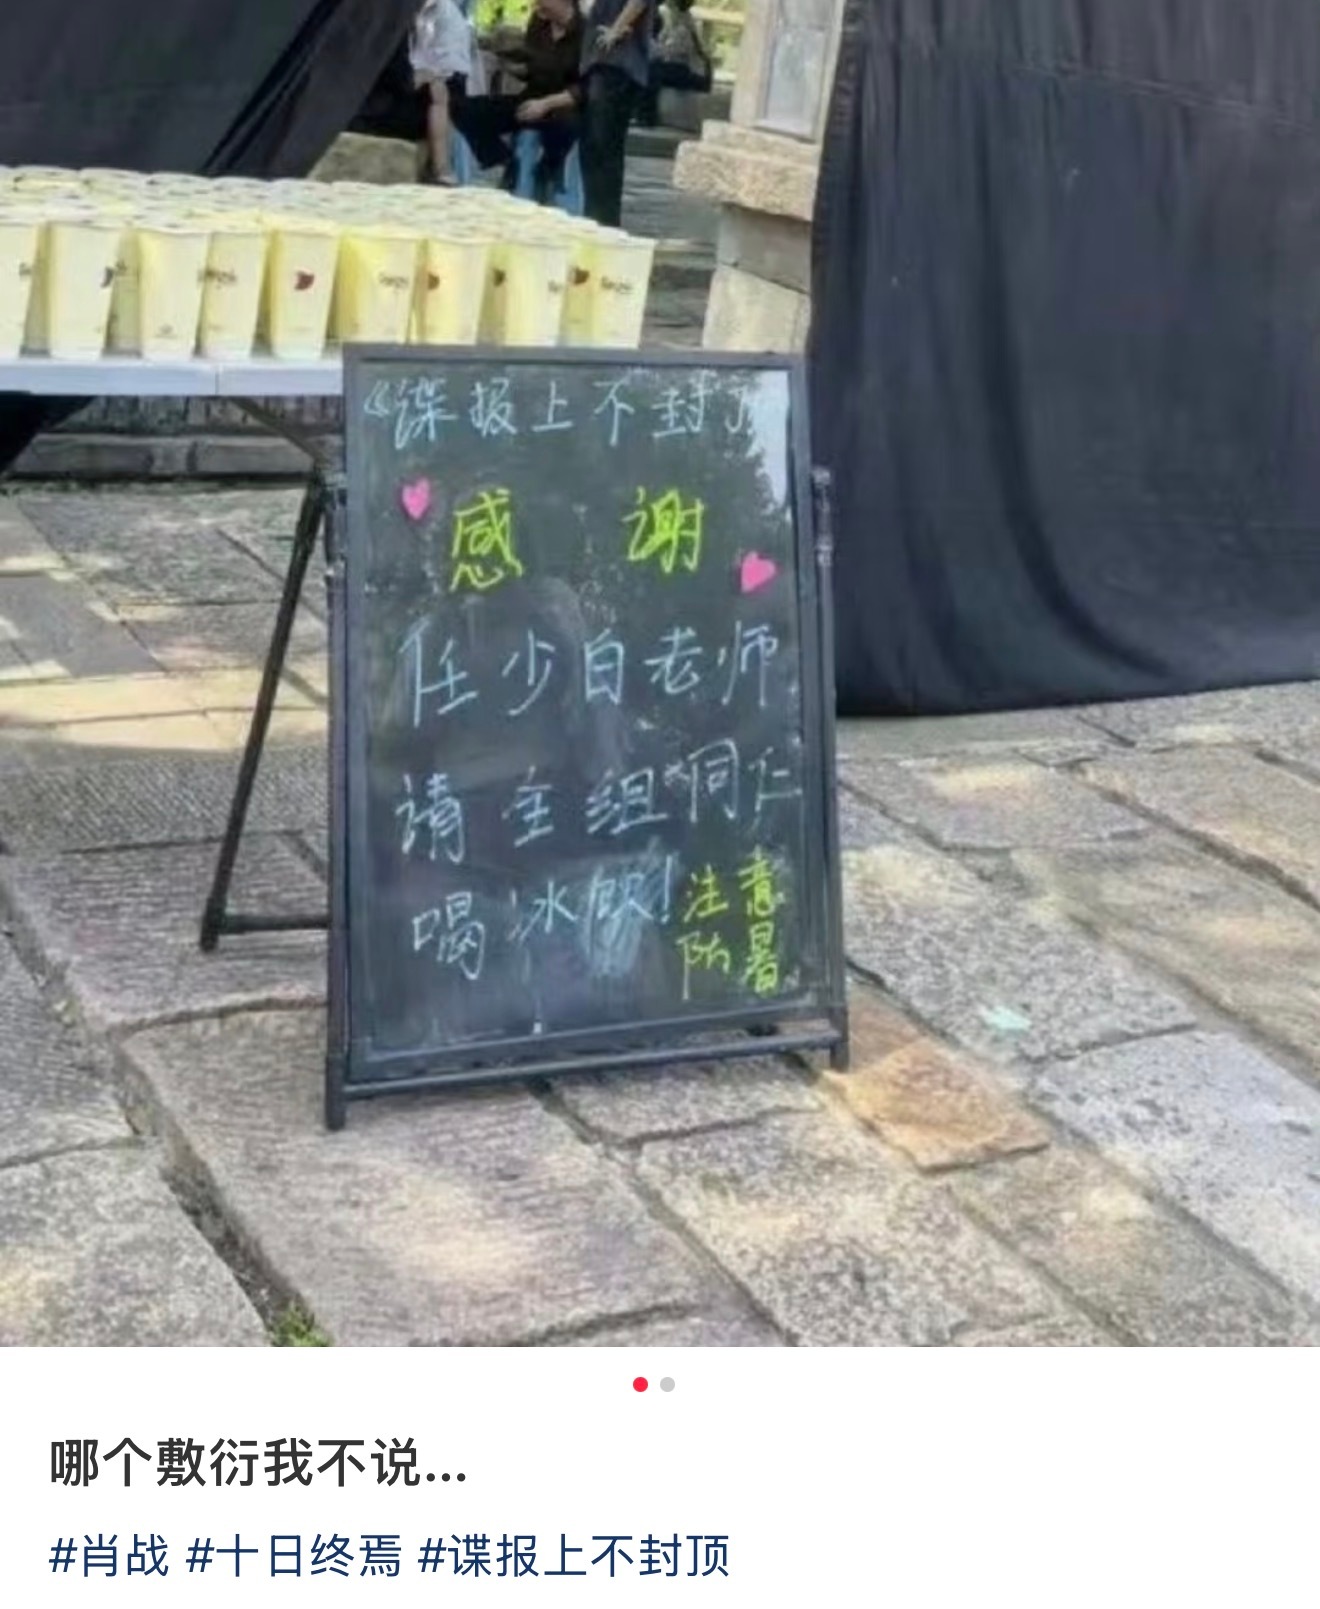 《谍报上不封顶
感 谢
任少白老师
请全组同仁
喝冰饮!
注意
防暑
哪个敷衍我不说...
#肖战 #十日终焉 #谍报上不封顶